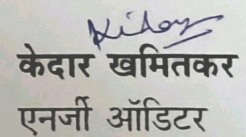 केदार खमितकर
एनर्जी ऑडिटर